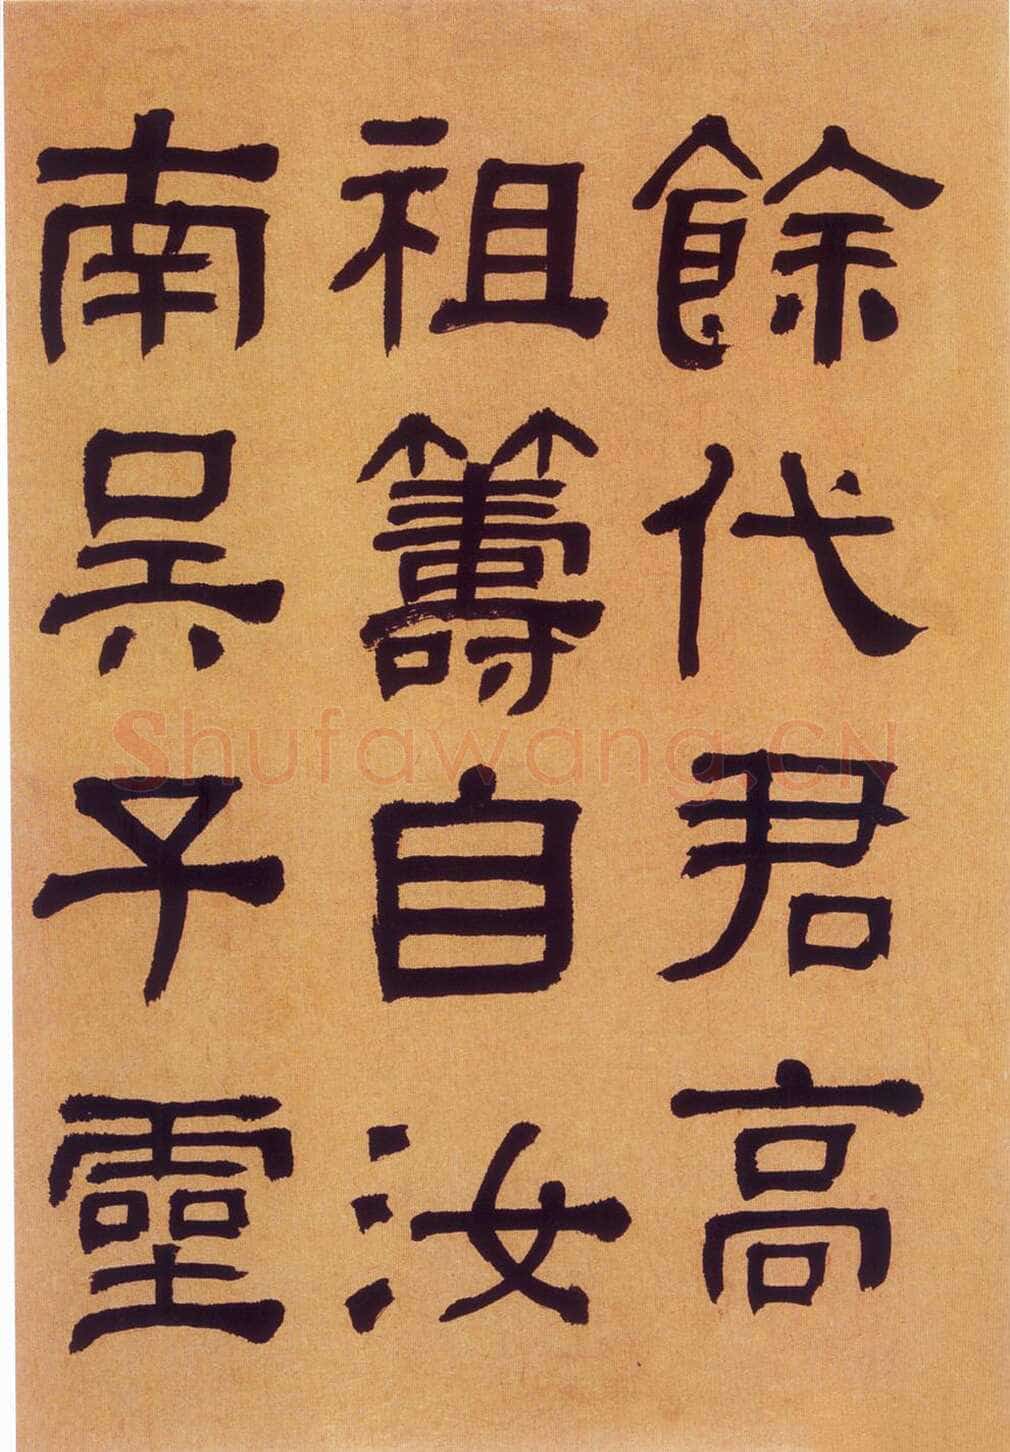 餘代君高
祖籌自汝
南吳子靈
Shufawang.CN